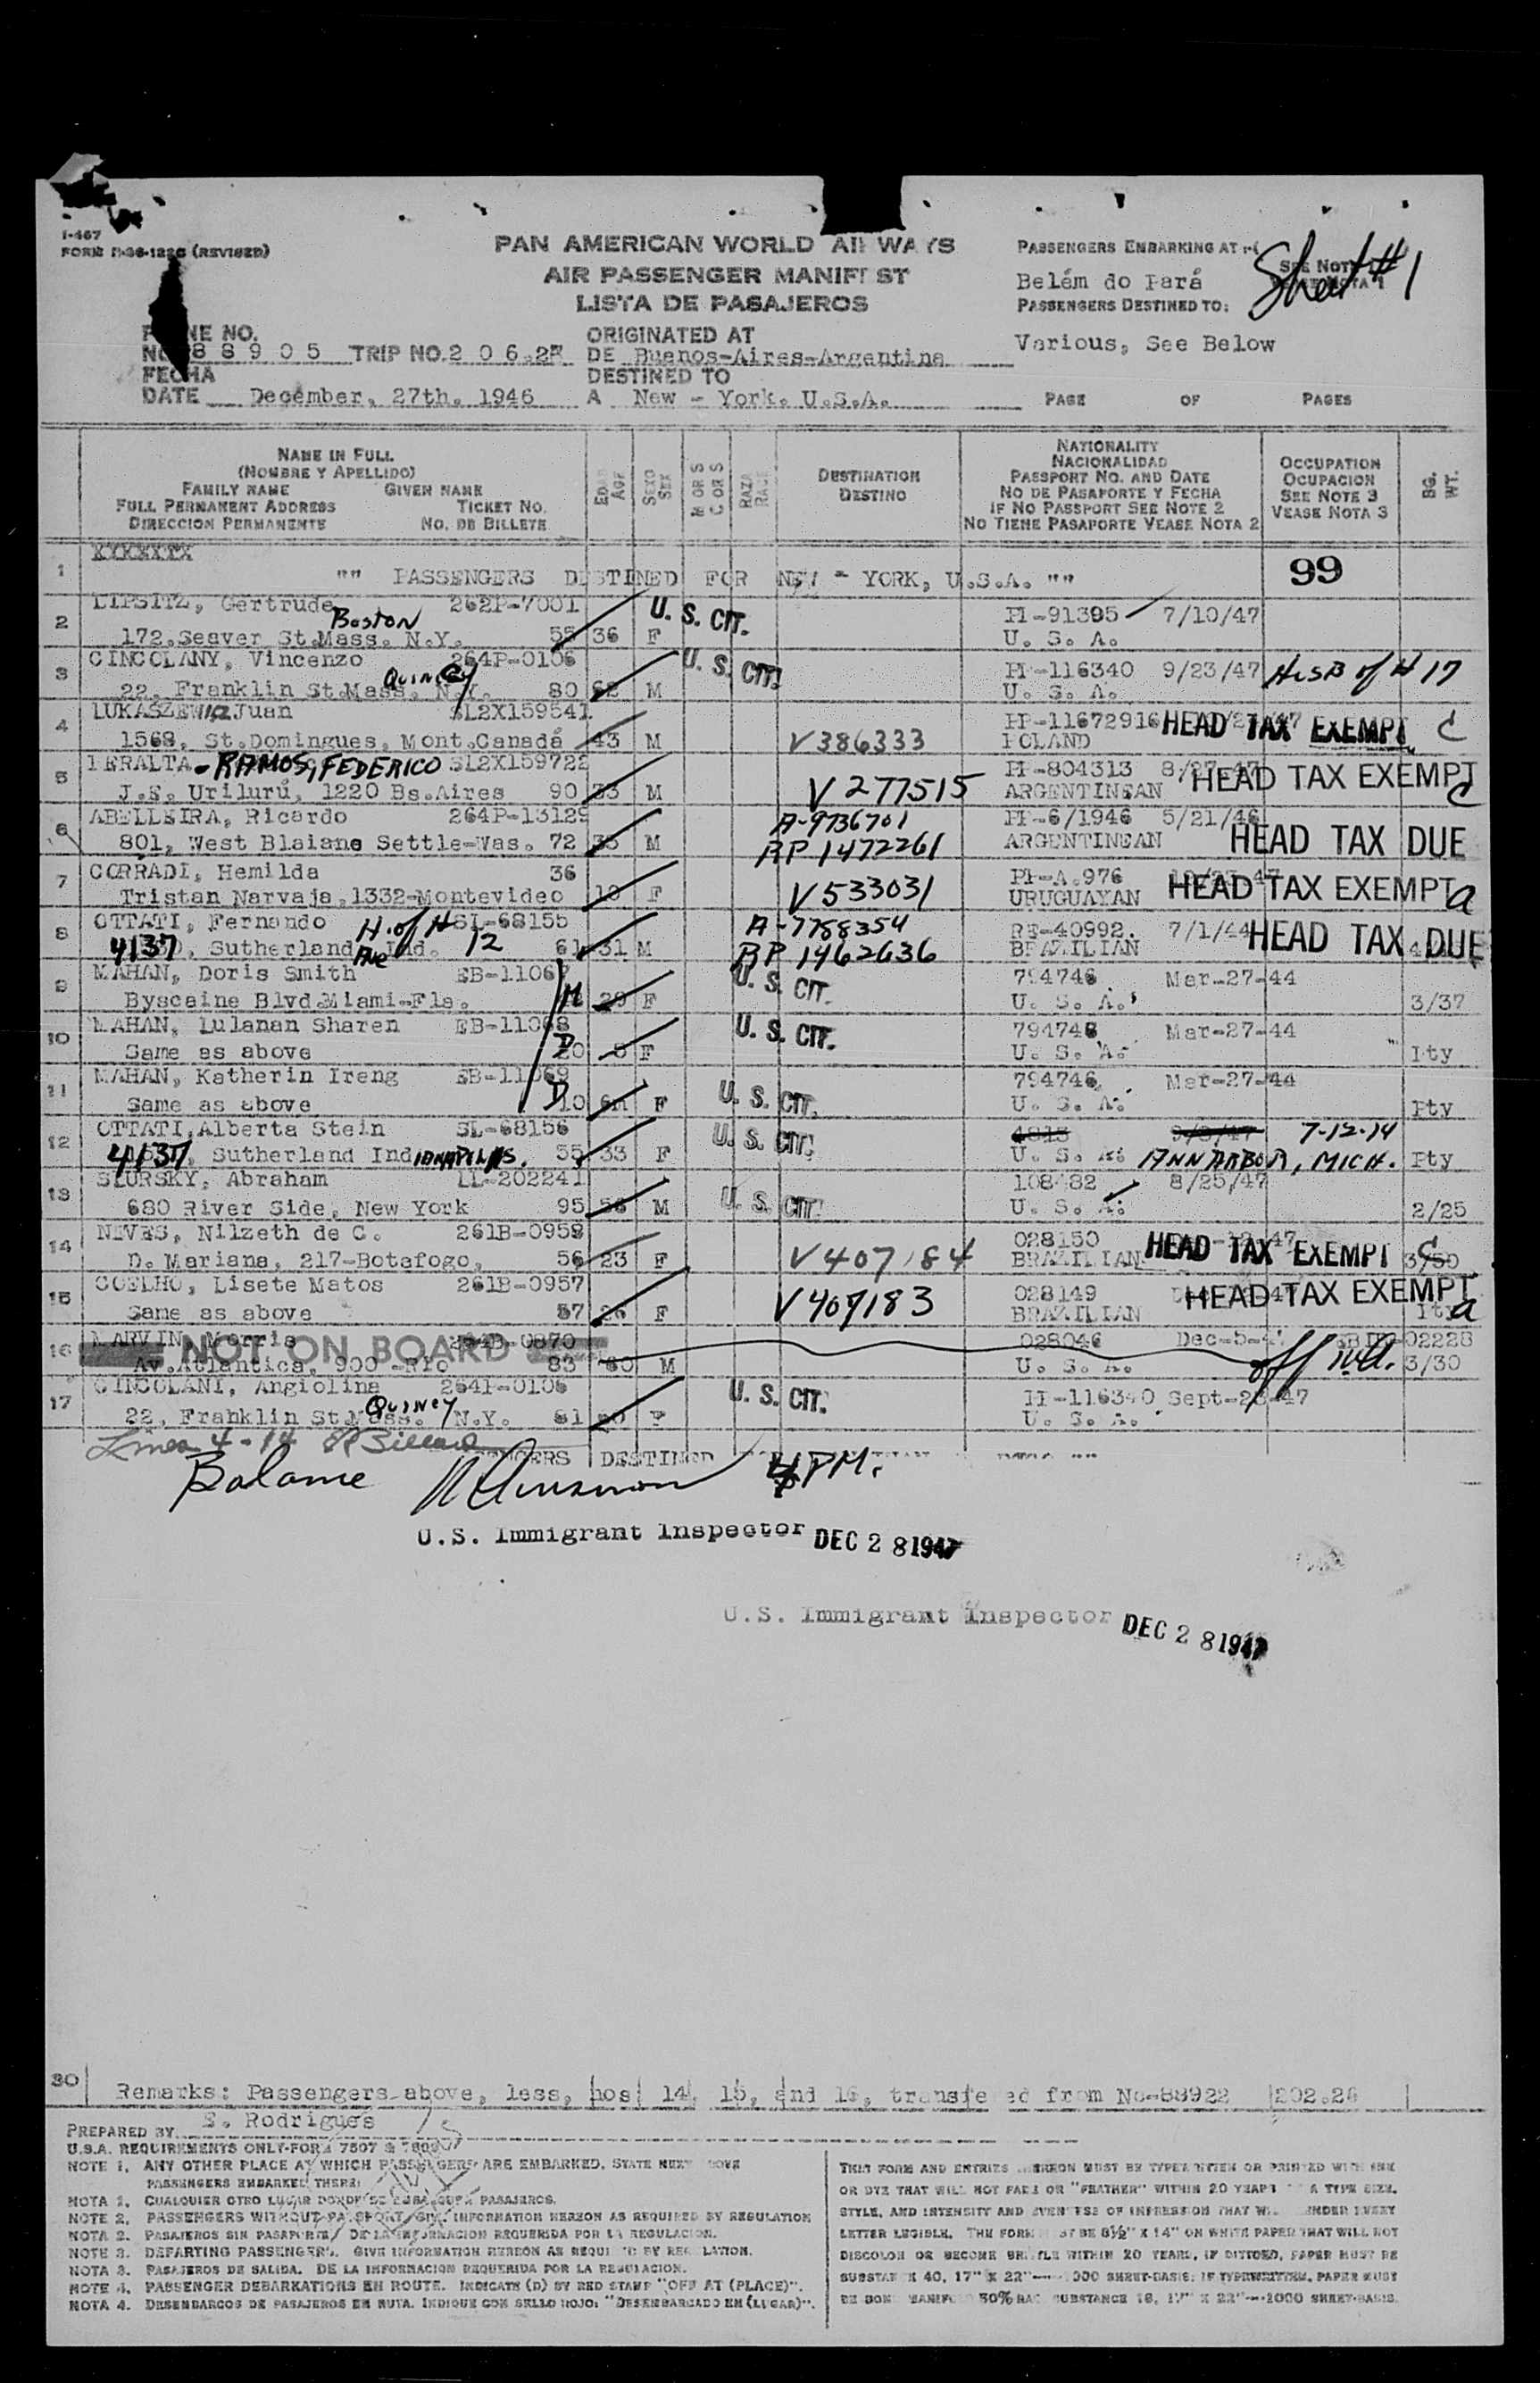 I-467
FORM (REVISED)
PAN AMERICAN WORLD AIRWAYS
AIR PASSENGER MANIFEST
LISTA DE PASAJEROS
PASSENGERS EMBARKING AT
SEE NOTE 1
VEASE NOTA 1
Sheet #1
Belém do Pará
PASSENGERS DESTINED TO:
Various, See Below
NO. 88905 TRIP NO. 206.2
ORIGINATED AT
DE Buenos-Aires-Argentina
FECHA
DATE December, 27th. 1946
DESTINED TO
A New - York. U.S.A.
PAGE OF PAGES
NAME IN FULL
(NOMBRE Y APELLIDO)
FAMILY NAME GIVEN NAME
FULL PERMANENT ADDRESS TICKET NO.
DIRECCION PERMANENTE NO. DE BILLETE
EDAD AGE
SEXO SEX
M OR S
C OR S
RAZA RACE
DESTINATION
DESTINO
NATIONALITY
NACIONALIDAD
PASSPORT NO. AND DATE
NO DE PASAPORTE Y FECHA
IF NO PASSPORT SEE NOTE 2
NO TIENE PASAPORTE VEASE NOTA 2
OCCUPATION
OCUPACION
SEE NOTE 3
VEASE NOTA 3
BG. WT.
1 "" PASSENGERS DESTINED FOR NEW - YORK, U.S.A. "" 99
2 LIPSITZ, Gertrude 262P-7001 U. S. CIT. 91395 7/10/47
Boston
172.Seaver St.Mass. N.Y. 55 36 F U. S. A.
3 CINCOLANY, Vincenzo 264P-0106 U. S. CIT. 116340 9/23/47 HusB of # 17
Quincy
22, Franklin St.Mass. N.Y. 80 62 M U. S. A.
4 LUKASZEWICZ Juan SL2X159541 11672916 HEAD TAX EXEMPT C
1568, St.Domingues, Mont.Canadá 43 M V 386333 POLAND
5 PERALTA-RAMOS, FEDERICO SL2X159722 804313 8/27-47 HEAD TAX EXEMPT C
J.E. Urilurú, 1220 Bs.Aires 90 33 M V 277515 ARGENTINEAN
6 ABELLEIRA, Ricardo 264P-13129 A-9736701 6/1946 5/21/46 HEAD TAX DUE
801, West Blaiane Settle-Was. 72 35 M RP 1472261 ARGENTINEAN
7 CORRADI, Hemilda 36 A.976 HEAD TAX EXEMPT a
Tristan Narvaja, 1332-Montevideo F V533031 URUGUAYAN
8 OTTATI, Fernando H. of # 12 SL-68155 A-7788354 RE-40992. 7/1/44 HEAD TAX DUE
4137, Sutherland Ave Ind. 61 31 M RP 1462636 BRAZILIAN
9 MAHAN, Doris Smith EB-11067 U. S. CIT. 794746 Mar-27-44
Byscaine Blvd.Miami-Fla. M 29 F U. S. A. 3/37
10 MAHAN, Lulanan Sharen EB-11068 U. S. CIT. 794746 Mar-27-44
Same as above D F U. S. A. Pty
11 MAHAN, Katherin Ireng EB-11069 U. S. CIT. 794746 Mar-27-44
Same as above D 6M F U. S. A. Pty
12 OTTATI, Alberta Stein SL-68156 U. S. CIT. 4813 9/8/47 7-12-14
4137, Sutherland INDIANAPOLIS. 55 33 F U. S. A. ANN ARBOR, MICH. Pty
13 SLURSKY, Abraham LL-202241 U. S. CIT. 8/25/47
680 River Side, New York 95 56 M U. S. A. 2/25
14 NEVES, Nilzeth de C. 261B-0958 028150 HEAD TAX EXEMPT C
D. Mariana, 217-Botafogo, 56 23 F V407184 BRAZILIAN 3/50
15 COELHO, Lisete Matos 261B-0957 028149 HEAD TAX EXEMPT a
Same as above 57 26 F V407183 BRAZILIAN
16 MARVIN, Morris NOT ON BOARD 0870 028046 Dec-5- 02228
Av.Atlantica, 900 -Rio 83 60 M U. S. A. off 3/30
17 CINCOLANI, Angiolina 264P-0106 U. S. CIT. 116340 Sept-23-47
Quincy
22, Franklin St.Mass. N.Y. 61 F U. S. A.
Lines 4-14
PASSENGERS DESTINED
Balance 4 PM.
U.S. Immigrant Inspector DEC 28 1947
U.S. Immigrant Inspector DEC 28 1947
30 Remarks: Passengers above, less, nos 14, 15, and 16, transfered from Nc-88922 202.26
PREPARED BY E. Rodrigues
U.S.A. REQUIREMENTS ONLY-FORM 7507 &
NOTE 1. ANY OTHER PLACE AT WHICH PASSENGERS ARE EMBARKED, STATE NEXT ABOVE
PASSENGERS EMBARKED THERE.
NOTA 1. CUALQUIER OTRO LUGAR DONDE SE EMBARQUEN PASAJEROS.
NOTE 2. PASSENGERS WITHOUT PASSPORT, GIVE INFORMATION HEREON AS REQUIRED BY REGULATION
NOTA 2. PASAJEROS SIN PASAPORTE, DE LA INFORMACION REQUERIDA POR LA REGULACION.
NOTE 3. DEPARTING PASSENGERS. GIVE INFORMATION HEREON AS REQUIRED BY REGULATION.
NOTA 3. PASAJEROS DE SALIDA. DE LA INFORMACION REQUERIDA POR LA REGULACION.
NOTE 4. PASSENGER DEBARKATIONS EN ROUTE. INDICATE (D) BY RED STAMP "OFF AT (PLACE)".
NOTA 4. DESEMBARCOS DE PASAJEROS EN RUTA. INDIQUE CON SELLO ROJO: "DESEMBARCADO EN (LUGAR)".
THIS FORM AND ENTRIES HEREON MUST BE TYPEWRITTEN OR PRINTED WITH INK
OR DYE THAT WILL NOT FADE OR "FEATHER" WITHIN 20 YEARS A TYPE SIZE,
STYLE, AND INTENSITY AND EVENNESS OF IMPRESSION THAT WILL RENDER EVERY
LETTER LEGIBLE. THE FORM MUST BE 8½" X 14" ON WHITE PAPER THAT WILL NOT
DISCOLOR OR BECOME BRITTLE WITHIN 20 YEARS, IF DITTOED, PAPER MUST BE
SUBSTANCE 40, 17" X 22"—1000 SHEET-BASIS; IF TYPEWRITTEN, PAPER MUST
BE BOND MANIFOLD 50% RAG SUBSTANCE 16, 17" X 22"—1000 SHEET-BASIS.